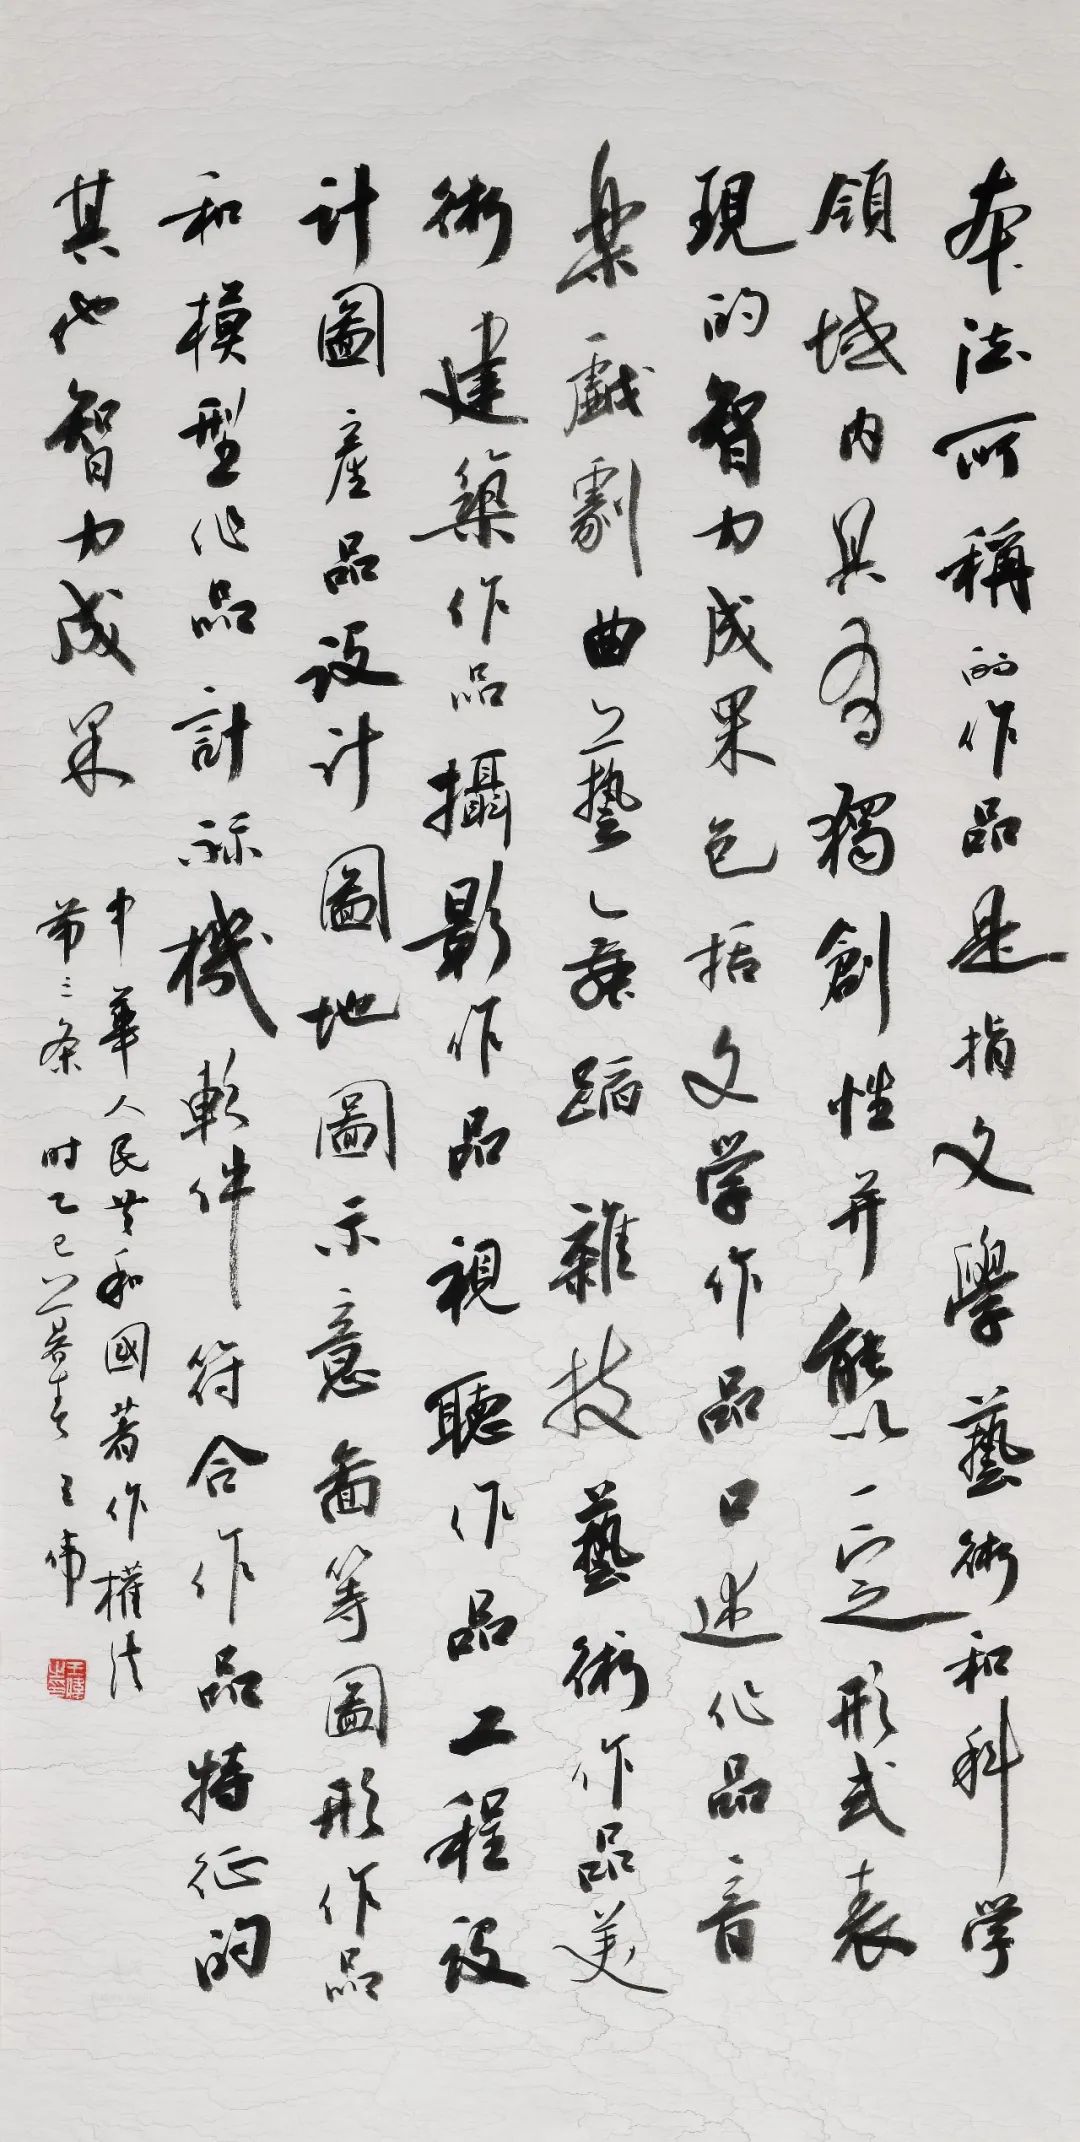 本法所稱的作品是指文學藝術和科学
領域内具有獨創性并能以一定形式表
現的智力成果包括文学作品口述作品音
樂戲劇曲藝舞蹈雜技藝術作品美
術建築作品攝影作品視聽作品工程設
計圖產品设计圖地圖示意啚等圖形作品
和模型作品計祘機軟件符合作品特征的
其他智力成果
中華人民共和國著作權法
第三条时乙巳暮春王偉